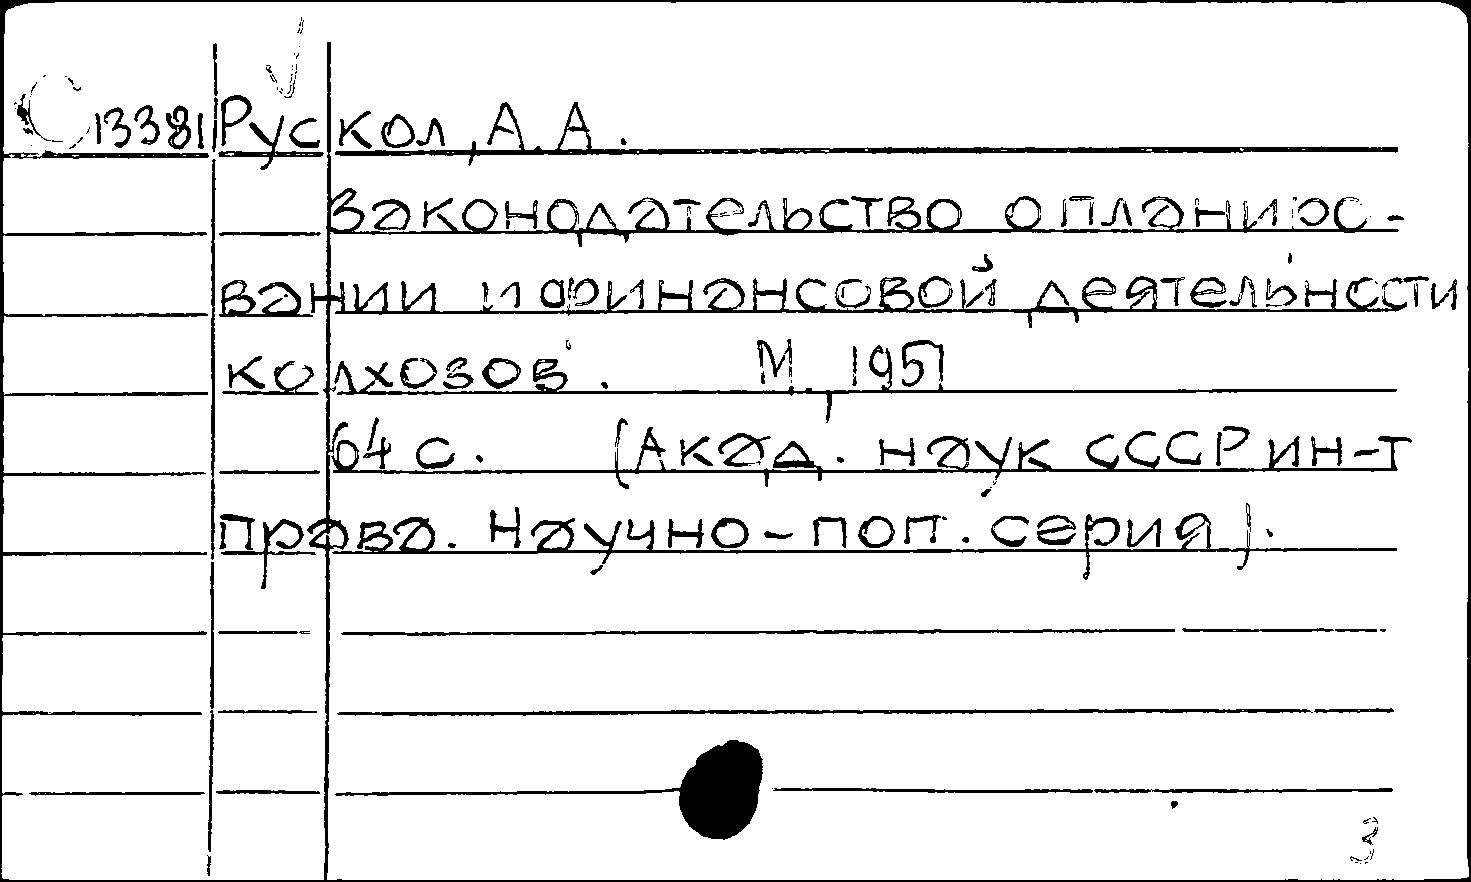 С13381 Рускол, А.А.
Законодательство о планиро-
вании и финансовой деятельности
колхозов. М., 1951
64 с. (Акад. наук СССР ин-т
права. Научно-поп. серия).
3